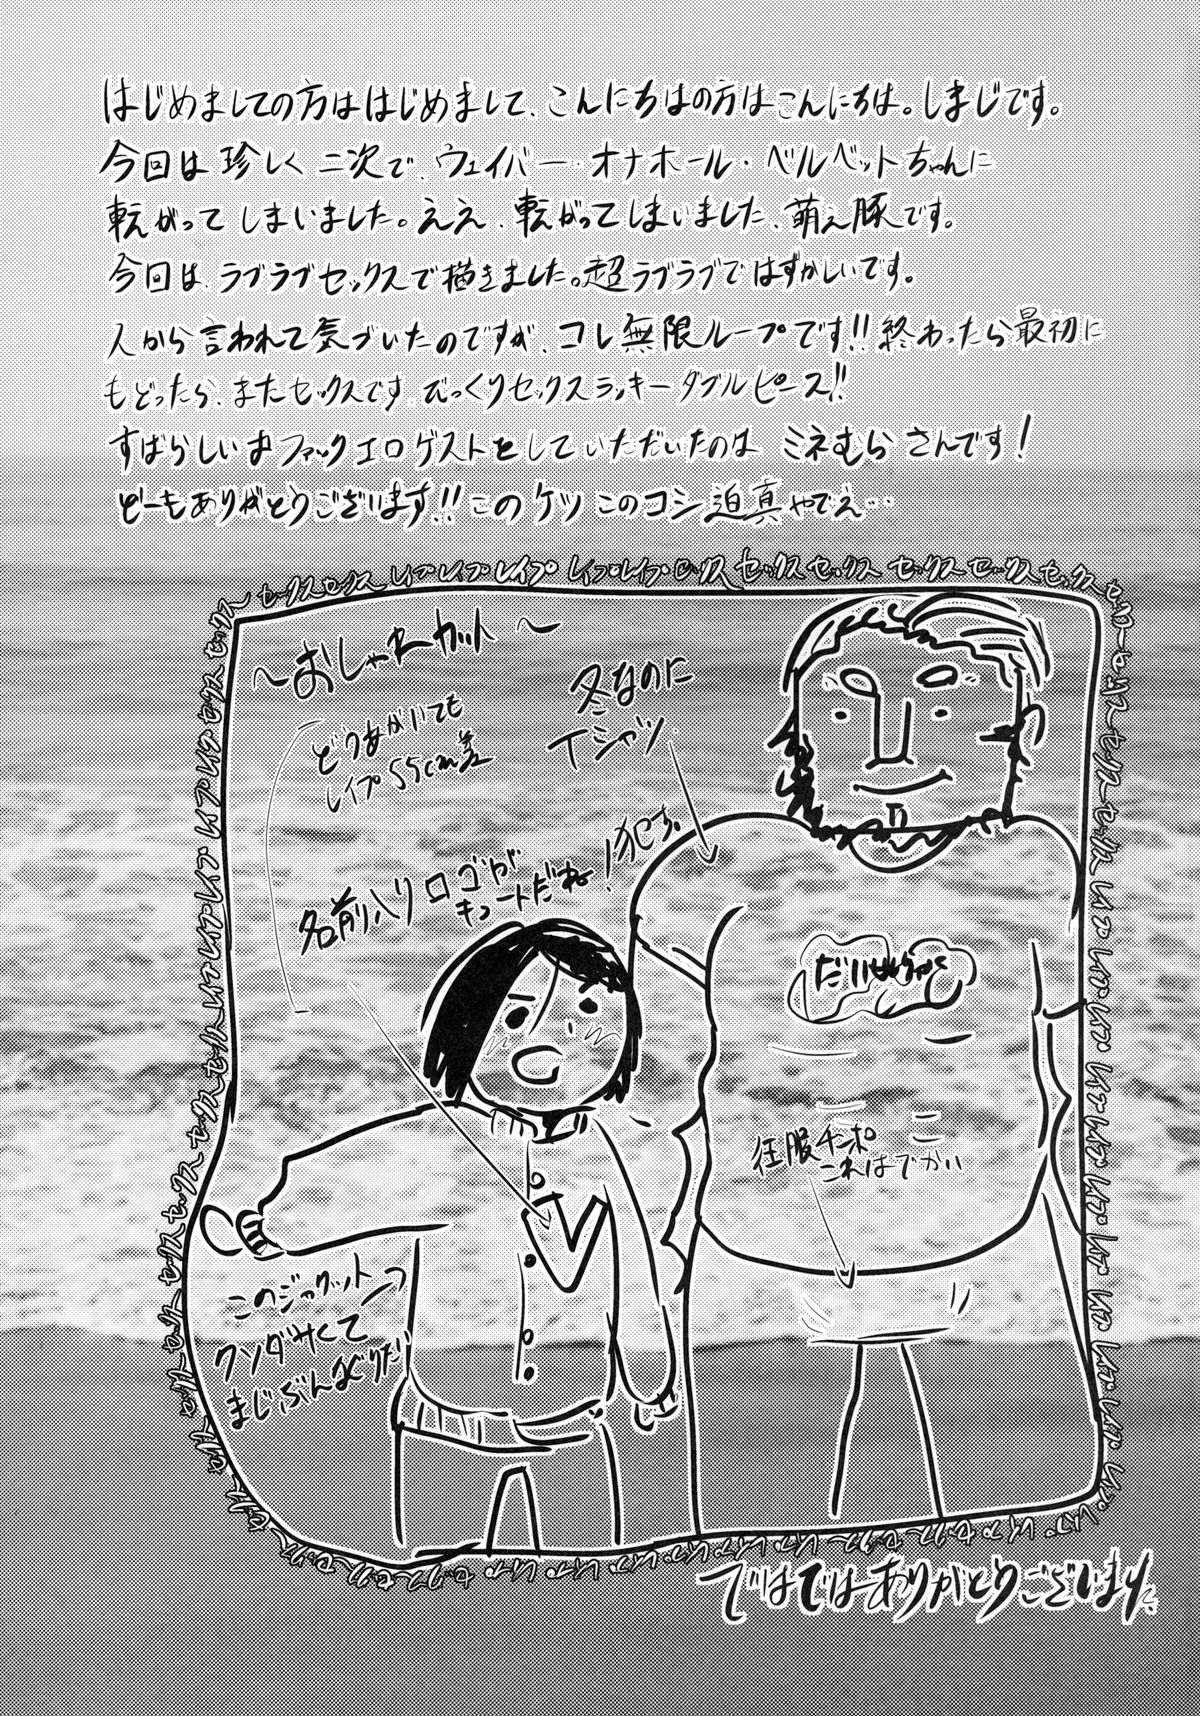 はじめましての方ははじめまして、こんにちはの方はこんにちは。しまじです。
今回は珍しく二次で、ウェイバー・オナホール・ベルベットちゃんに
転がってしまいました。ええ、転がってしまいました、萌え豚です。
今回は、ラブラブセックスで描きました。超ラブラブではずかしいです。
人から言われて気づいたのですが、コレ無限ループです!!終わったら最初に
もどったら、またセックスです。びっくりセックスラッキーダブルピース!!
すばらしいおファックエロゲストをしていただいたのは ミネむらさんです!
どーもありがとうございます!!このケツこのコシ迫真やでえ…
〜おしゃれカット〜
どうあがいても
レイプ55cm差
冬なのに
Tシャツ
名前入りロゴが
キュートだね!犯す。
征服チンポ
これはでかい
このジャケット
クソダサくて
まじぶんなぐりたい
ではではありがとうございます。